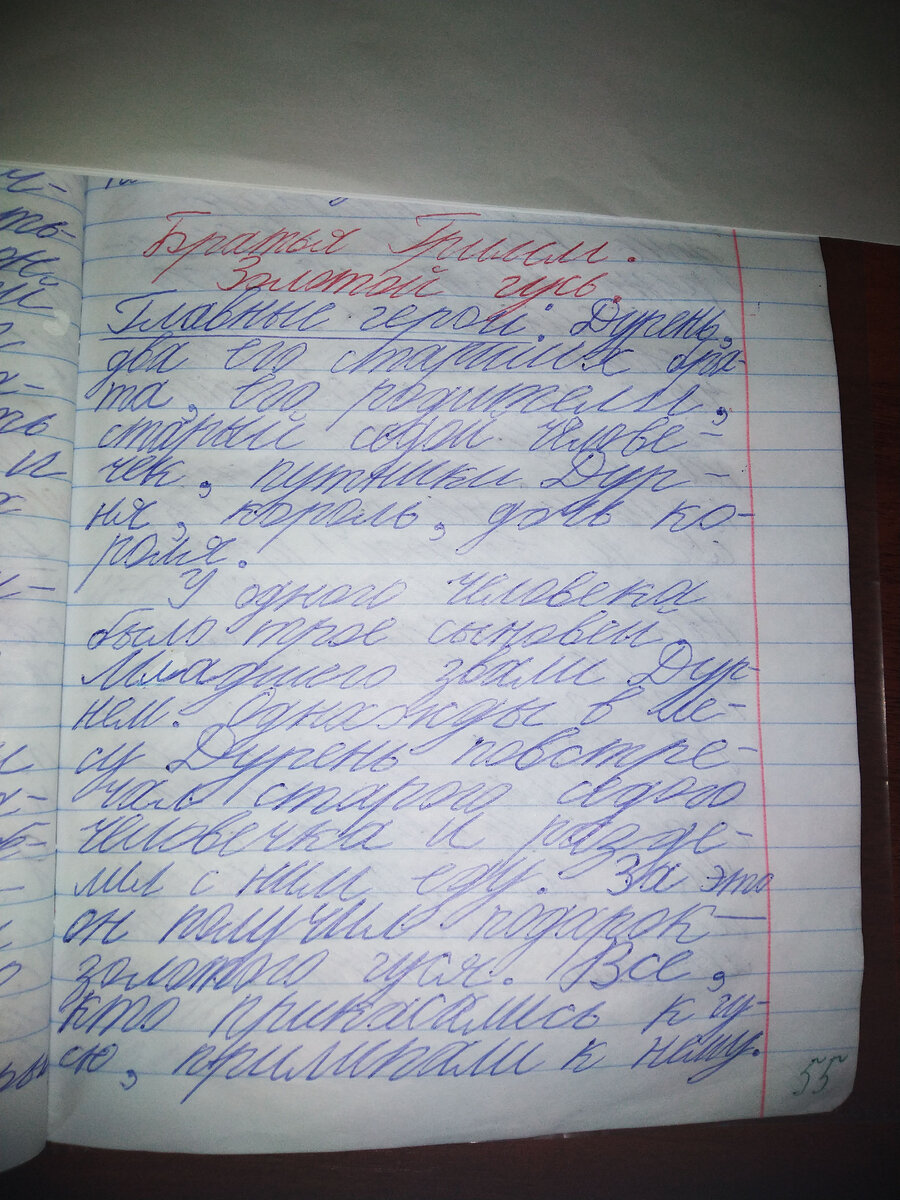 Братья Гримм.
Золотой гусь.
Главные герои: Дурень,
два его старших бра-
та, его родители,
старый седой челове-
чек, путники Дур-
ня, король, дочь ко-
роля.
У одного человека
было трое сыновей.
Младшего звали Дур-
нем. Однажды в ле-
су Дурень повстре-
чал старого седого
человечка и разде-
лил с ним еду. За это
он получил подарок —
золотого гуся. Все,
кто прикасались к гу-
сю, прилипали к нему.
55